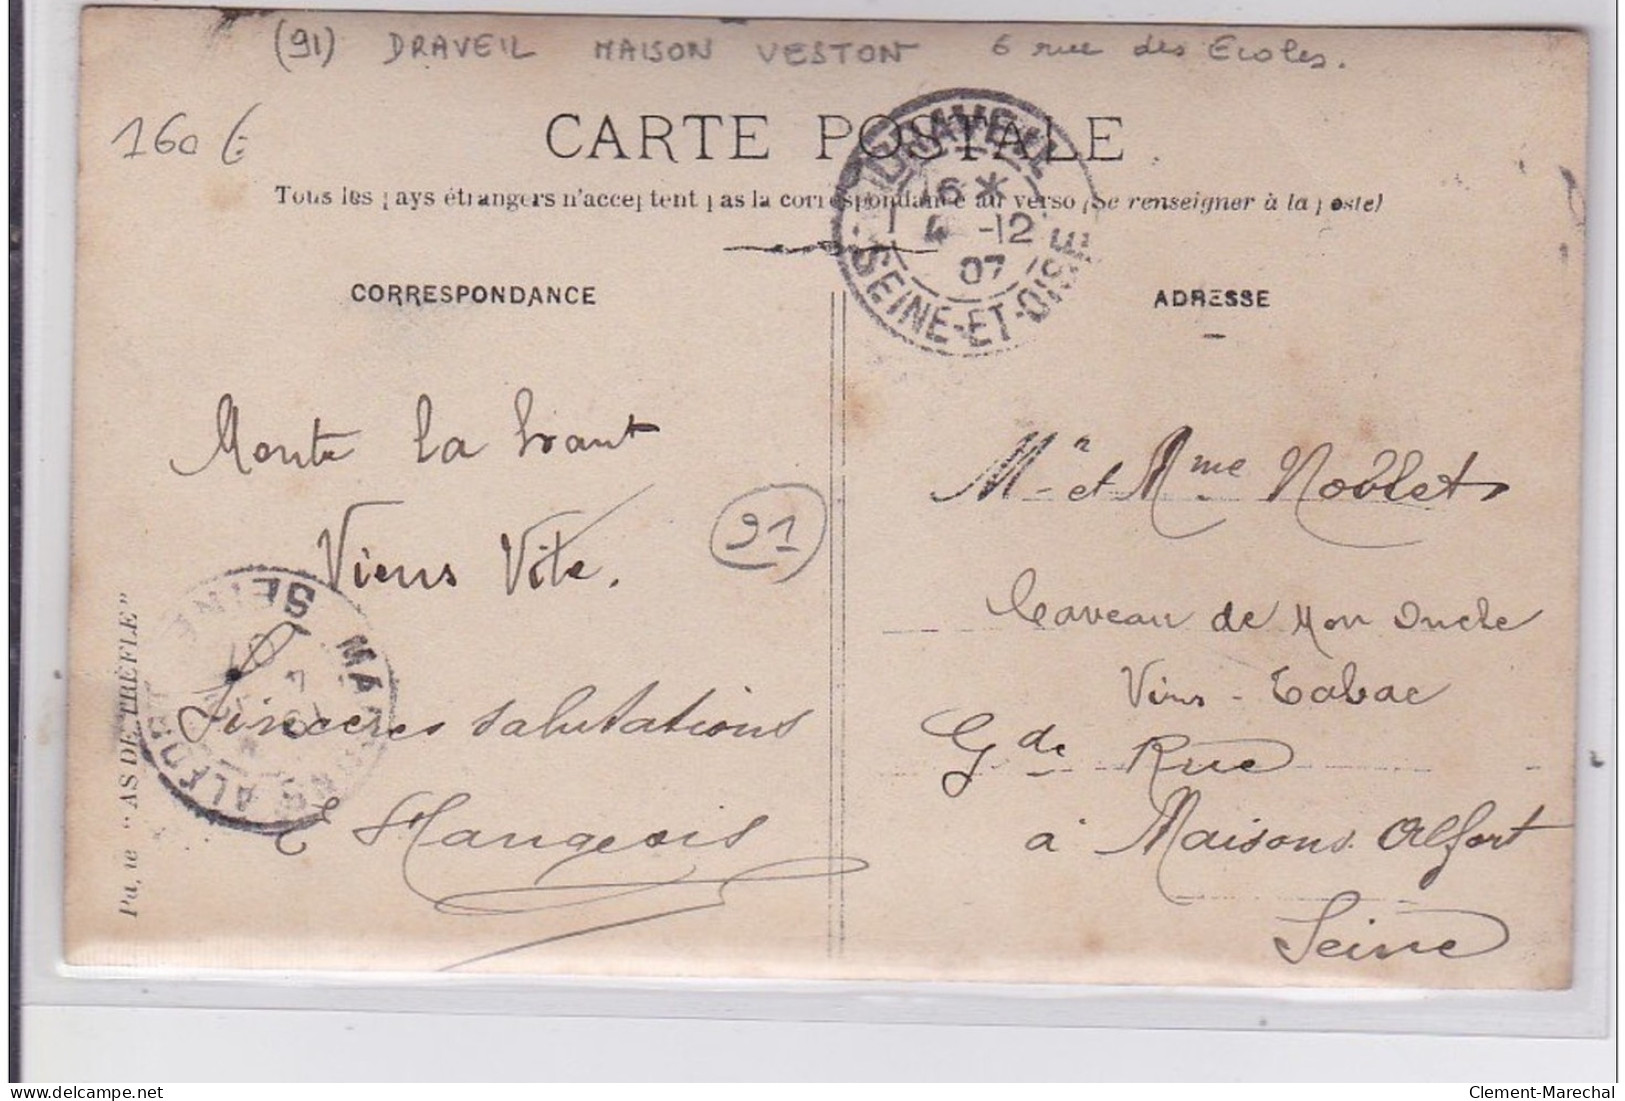 (91) DRAVEIL MAISON VESTON 6 rue des Ecoles.
160 €
CARTE POSTALE
Tous les pays étrangers n'acceptent pas la correspondance au verso (Se renseigner à la poste)
DRAVEIL
6 *
4 -12
07
SEINE-ET-OISE
CORRESPONDANCE
ADRESSE
Monte la haut
Viens Vite.
91
Sinceres salutations
E Hangeois
Mr et Mme Noblet
Caveau de Mon Oncle
Vins - Tabac
Gde Rue
à Maisons Alfort
Seine
"AS DE TRÈFLE"
SEINE
www.delcampe.net
Clement-Marechal